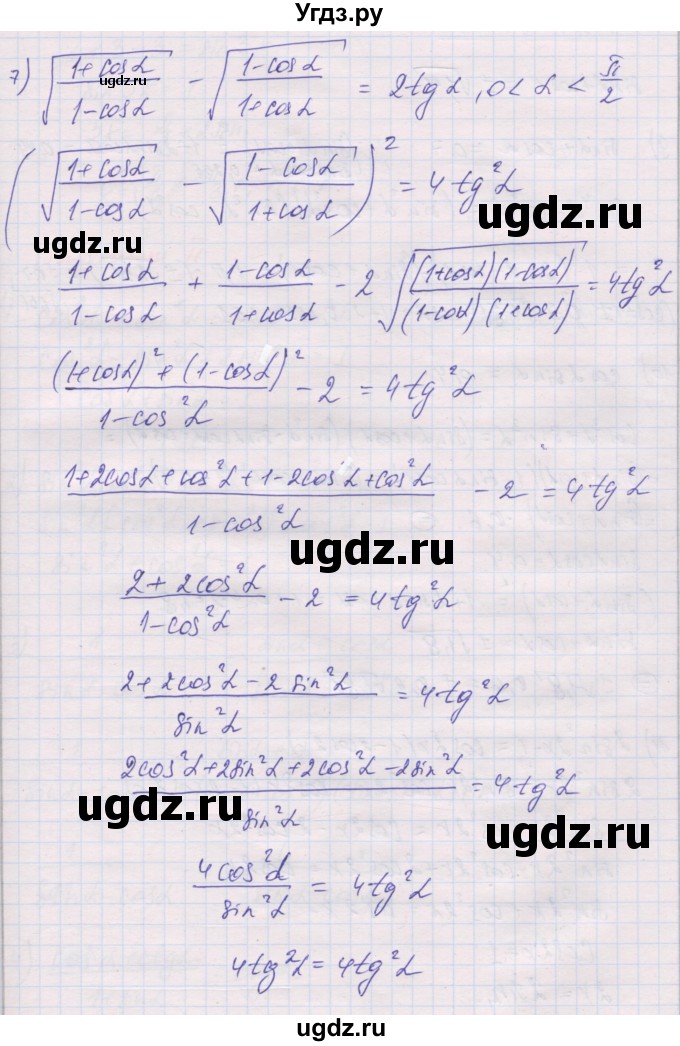 Угдз.ру
7) √((1+cosα)/(1-cosα)) - √((1-cosα)/(1+cosα)) = 2tgα, 0<α<π/2
ugdz.ru
(√((1+cosα)/(1-cosα)) - √((1-cosα)/(1+cosα)))² = 4tg²α
ugdz.ru
ugdz.ru
(1+cosα)/(1-cosα) + (1-cosα)/(1+cosα) - 2√((1+cosα)(1-cosα)/(1-cosα)(1+cosα)) = 4tg²α
((1+cosα)²+(1-cosα)²)/(1-cos²α) - 2 = 4tg²α
(1+2cosα+cos²α+1-2cosα+cos²α)/(1-cos²α) - 2 = 4tg²α
ugdz.ru
(2+2cos²α)/(1-cos²α) - 2 = 4tg²α
(2+2cos²α-2sin²α)/(sin²α) = 4tg²α
(2cos²α+2sin²α+2cos²α-2sin²α)/(sin²α) = 4tg²α
ugdz.ru
ugdz.ru
(4cos²α)/(sin²α) = 4tg²α
4tg²α = 4tg²α
ugdz.ru